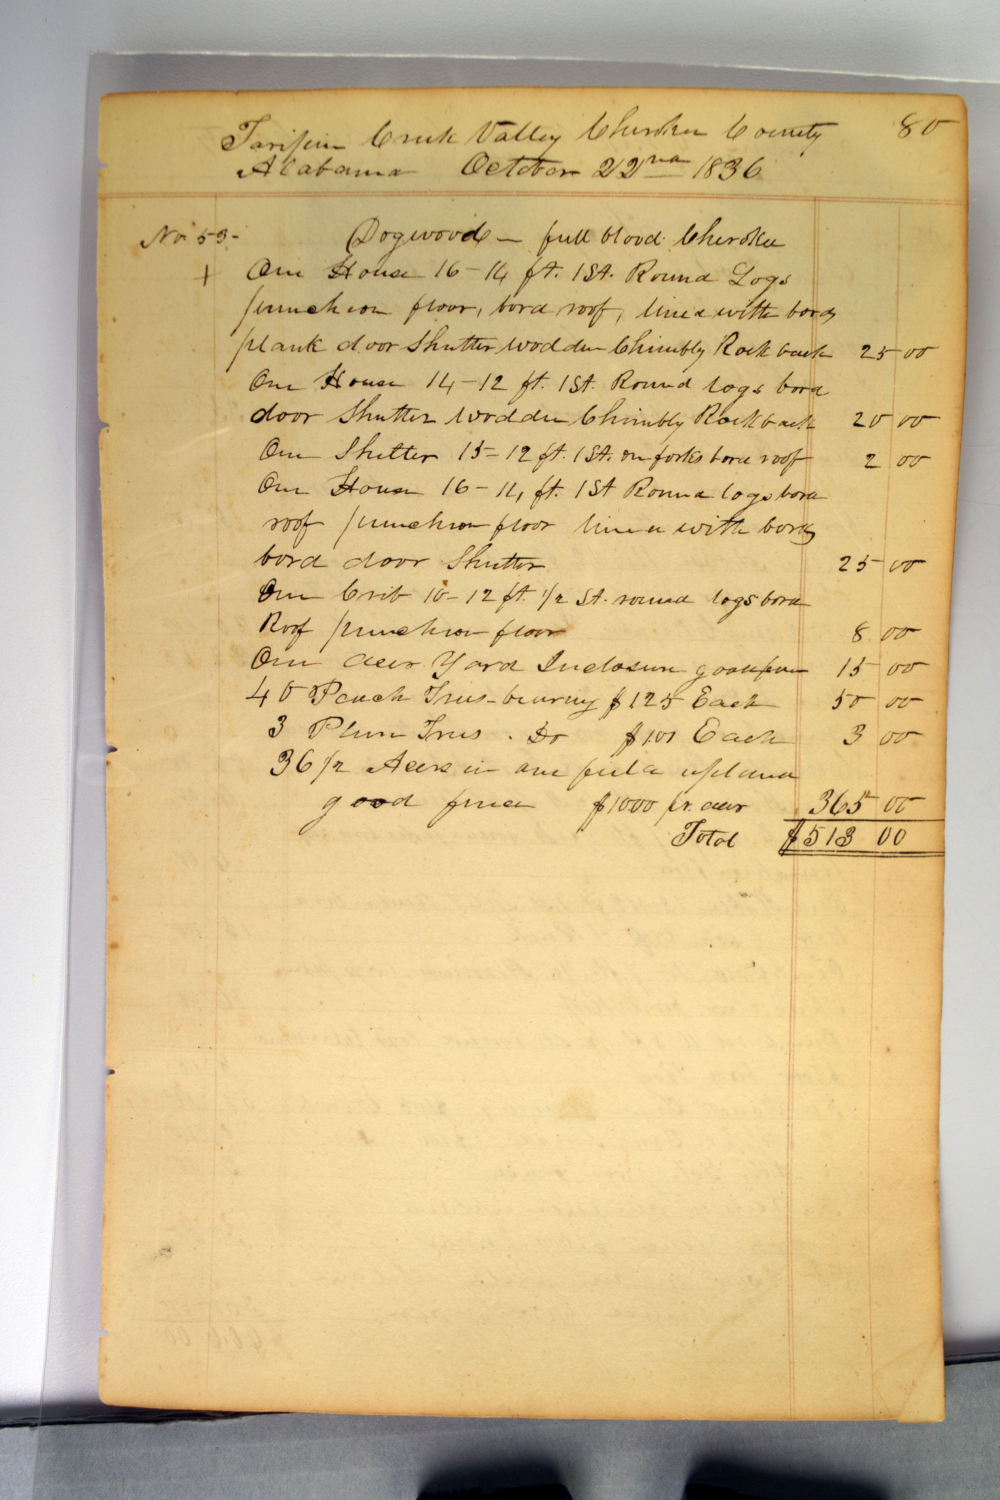 Taripin Creek Valley Cherokee County 80
Alabama October 22nd 1836
No 53- Dogwood - full blood Cherokee
+ One House 16-14 ft. 1 St. Round Logs
puncheon floor, bord roof, lined with bords
plank door Shutter wodden Chimbly Rock back 25 00
One House 14-12 ft. 1 St. Round logs bord
door Shutter wodden Chimbly Rock back 20 00
One Shelter 15-12 ft. 1 St. on forks bord roof 2 00
One House 16-14 ft. 1 St Round logs bord
roof puncheon floor lined with bords
bord door Shutter 25 00
One Crib 16-12 ft. 1/2 St. round logs bord
Roof puncheon floor 8 00
One acer Yard Inclosure good 15 00
40 Peach Trees - bearing $125 Each 50 00
3 Plum Trees . Do $100 Each 3 00
36 1/2 Acers in one field upland
good fence $1000 pr. acer 365 00
Total $513 00